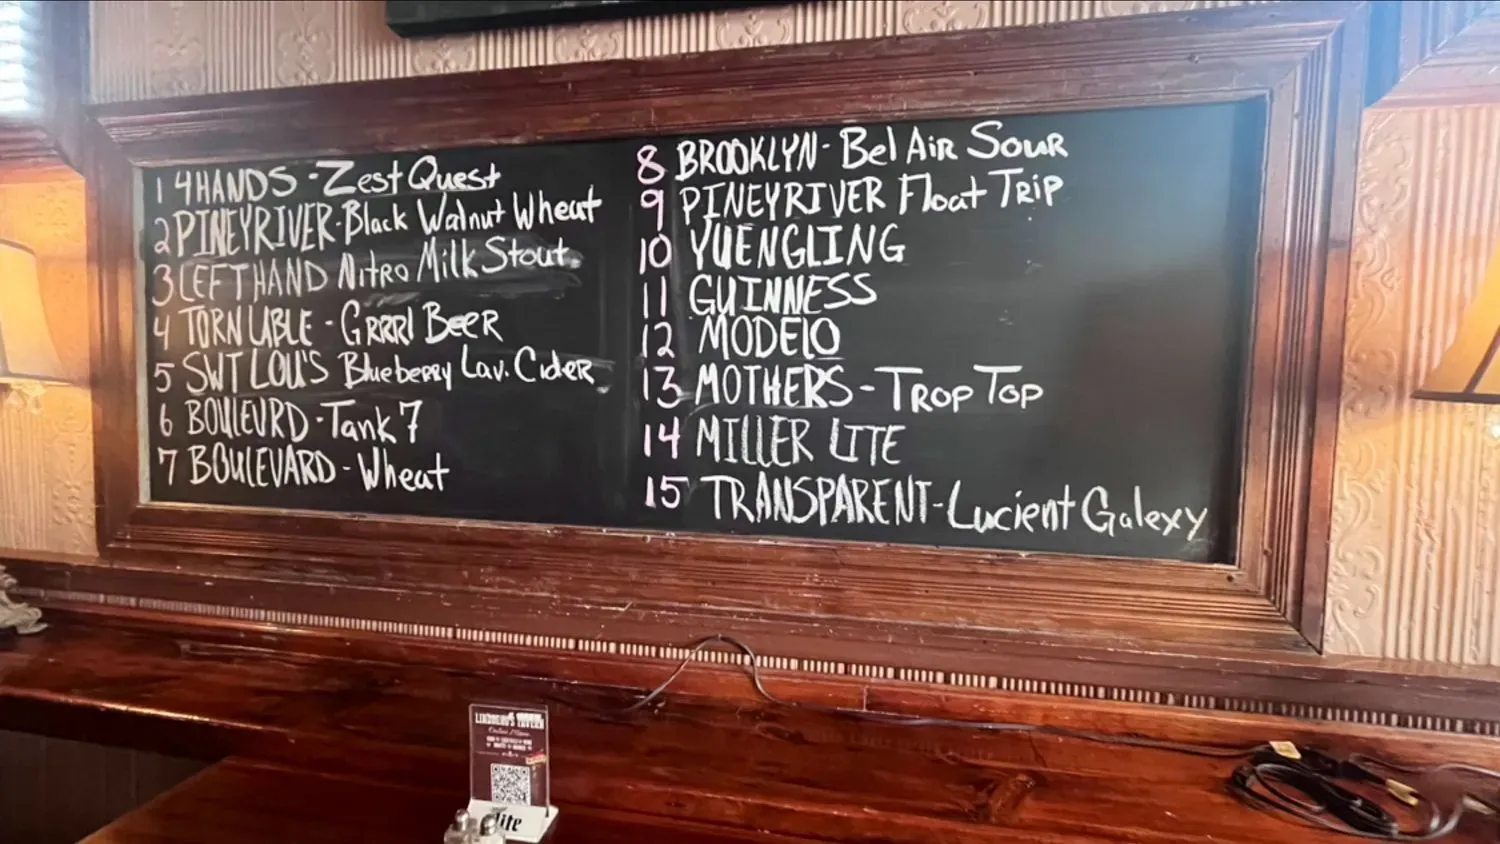 1 4HANDS - Zest Quest
2 PINEYRIVER-Black Walnut Wheat
3 LEFTHAND Nitro Milk Stout
4 TORN LABLE - GRRRl BeeR
5 SWT LOU'S Blueberry Lav. CideR
6 BOULEVRD - Tank 7
7 BOULEVARD - Wheat
8 BROOKLYN - Bel AiR SouR
9 PINEYRIVER Float TRip
10 YUENGLING
11 GUINNESS
12 MODELO
13 MOTHERS - TROP TOP
14 MILLER LITE
15 TRANSPARENT - Lucient Galexy
LINDBERG'S TAVERN
Online Menu
lite